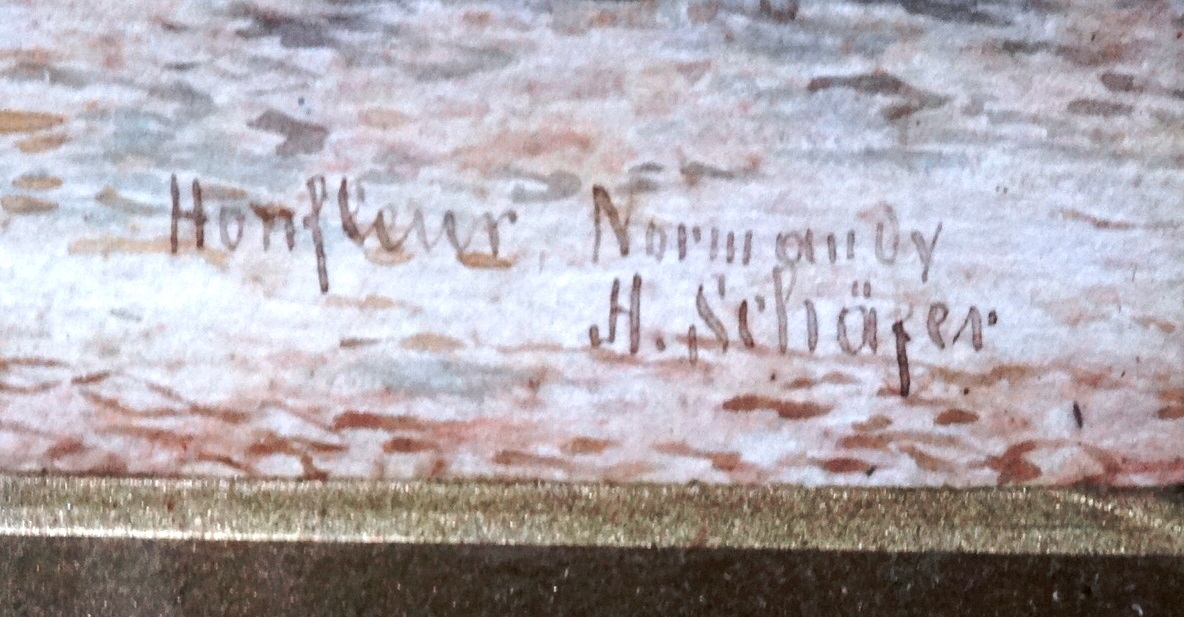 Honfleur Normandy
H. Schäfer